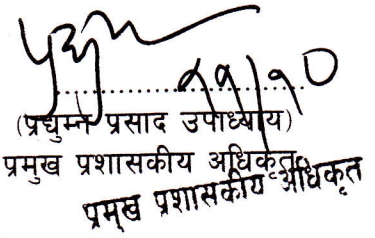 (प्रद्युम्न प्रसाद उपाध्याय)
प्रमुख प्रशासकीय अधिकृत
प्रमुख प्रशासकीय अधिकृत